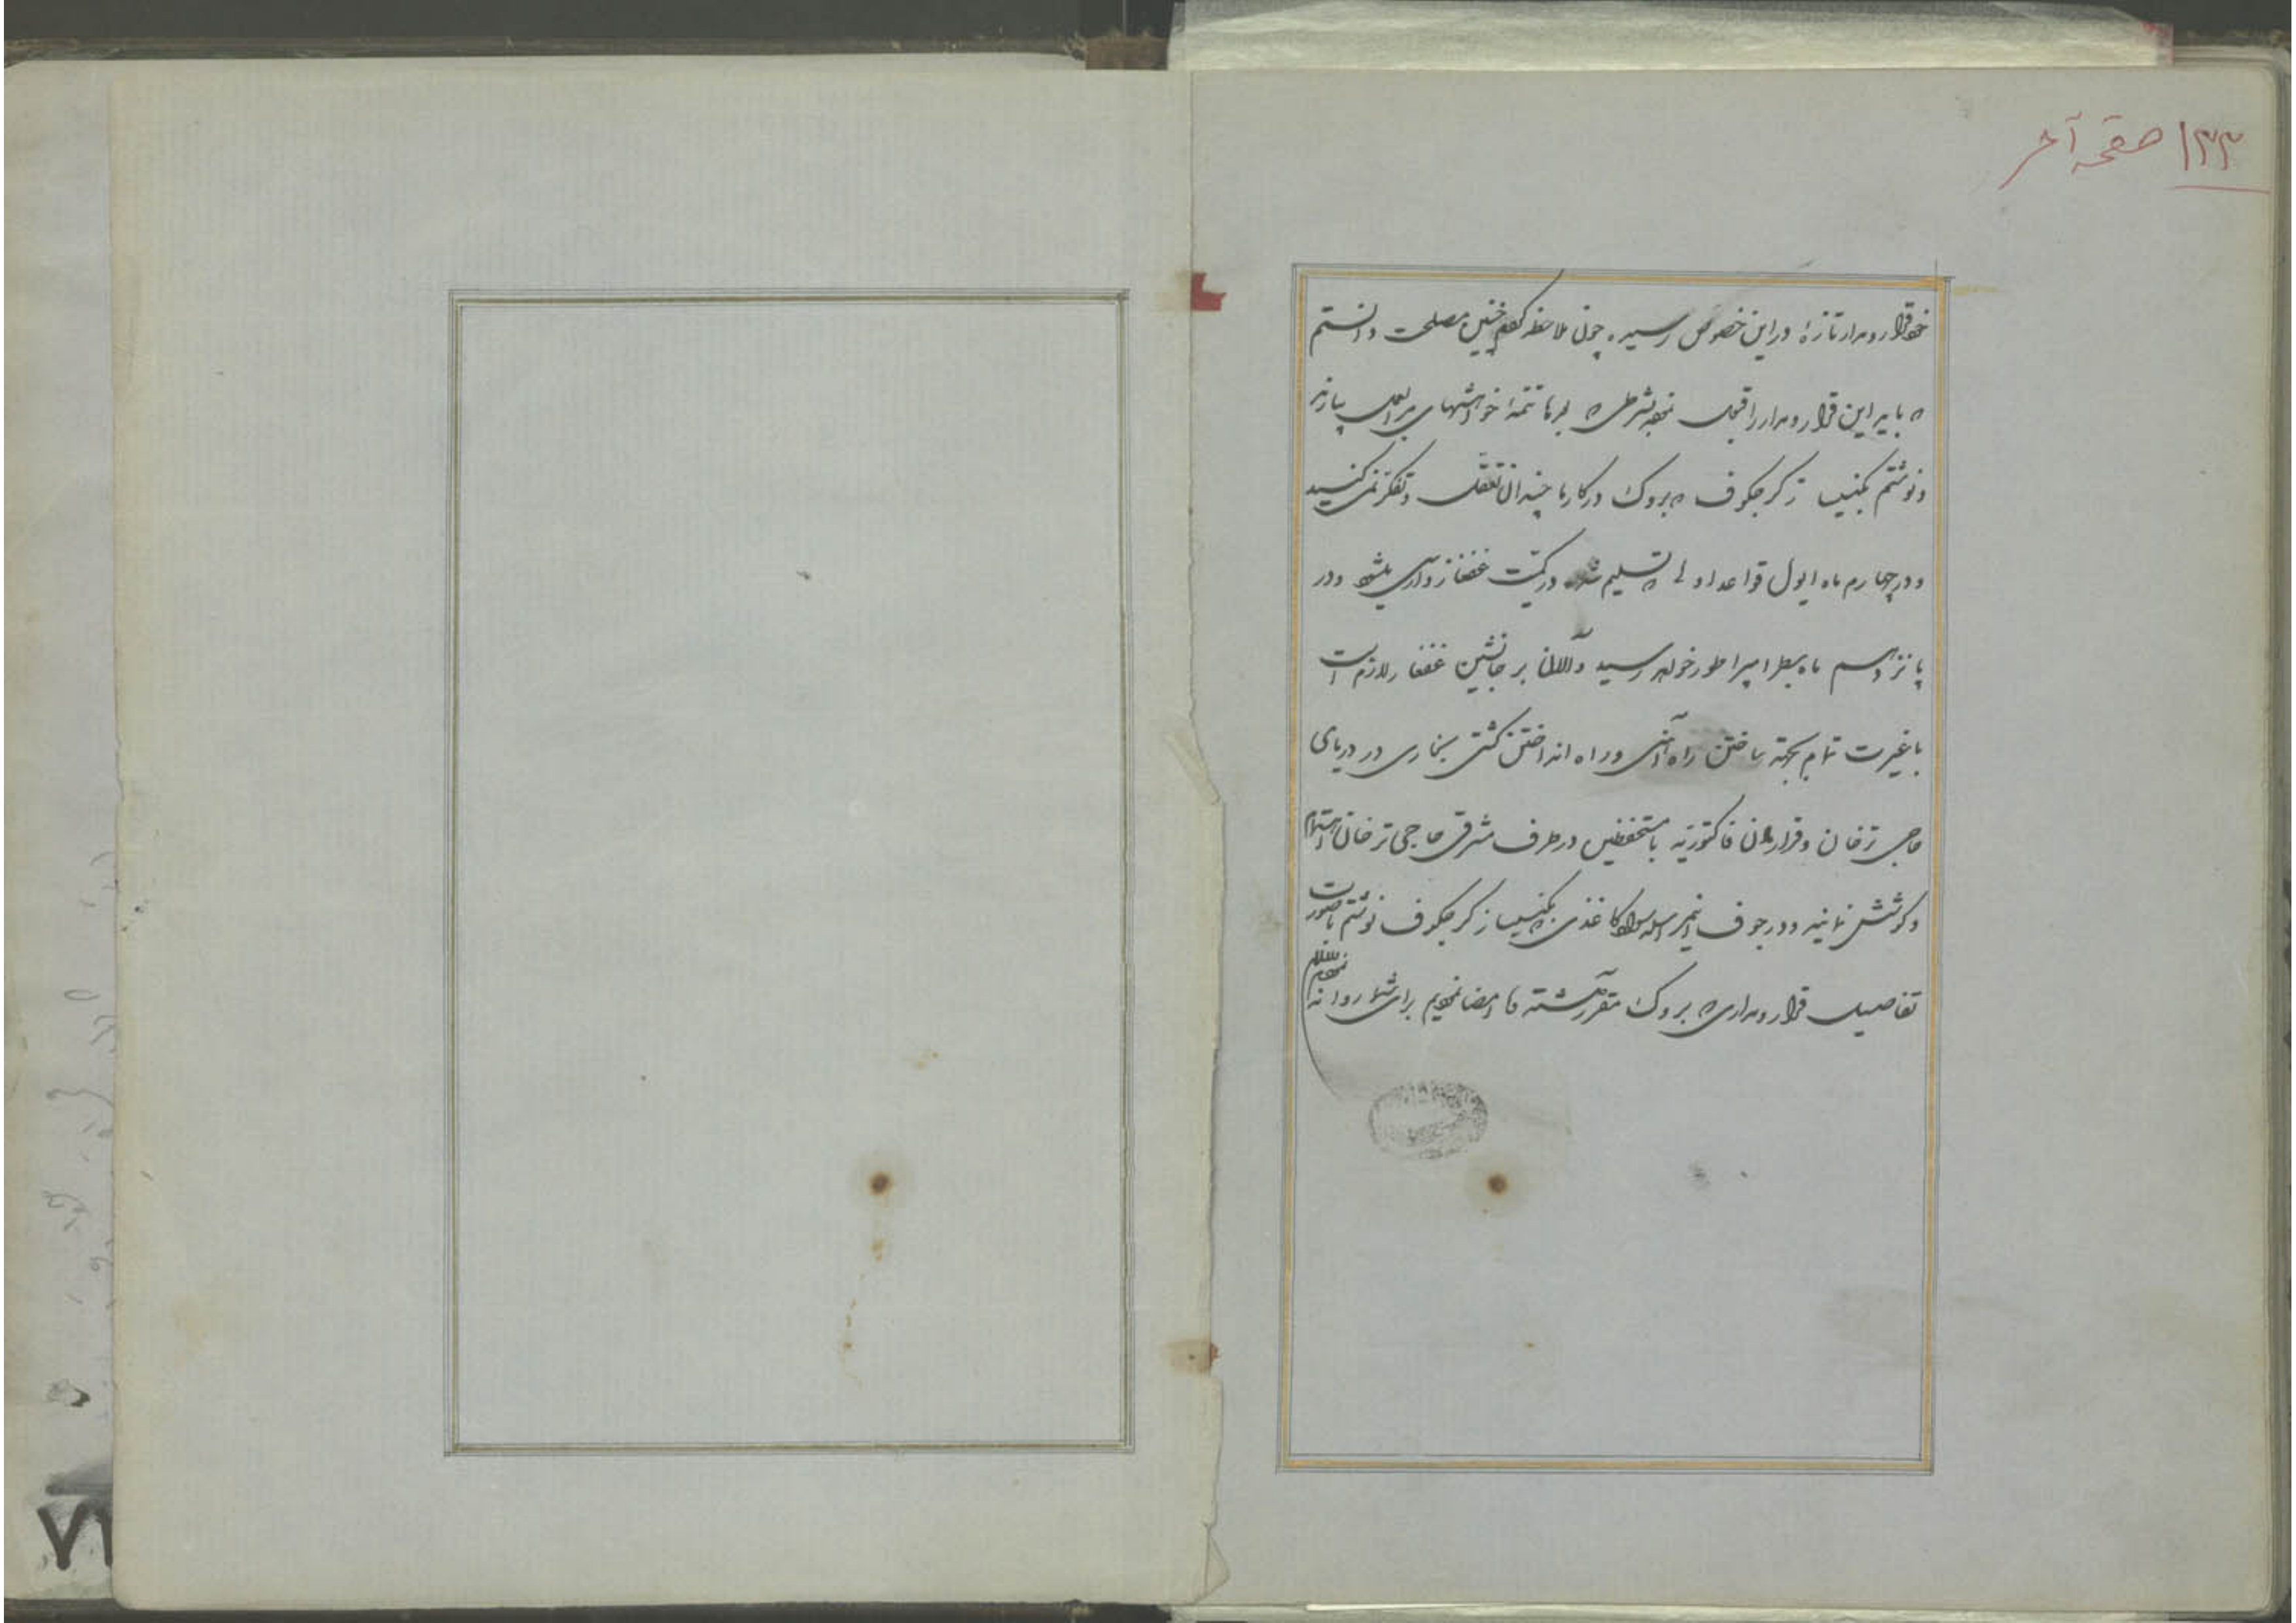 ۱۳۳ صفحه آخر
خود قرار و مدار تازهٔ در این خصوص رسیده چون ملاحظه کردم چنین مصلحت دانستم
که باید این قرار و مدار را قبول نمود بشرطی که بر ما تتمهٔ خواهشهای
و نوشتم بکنیب ز کرجکوف که بروک در کارها چندان تعقل و تفکر نمی کنید
و در چهارم ماه ایول قواعد اولی تسلیم شد در کمیت غفقاز وارسی میشود و در
پانزدهم ماه بنظر امپراطور خواهد رسید و الان بر جانشین غفقاز لازم است
با غیرت تمام بجهته ساختن راه آهنی و راه انداختن کشتی بخاری در دریای
حاجی ترخان و قرار دادن فاکتوزیه با مستحفظین در طرف مشرقی حاجی ترخان اهتمام
و کوشش نمایند و در جوف این مراسله سواد کاغذی که بکنیب ز کرجکوف نوشتم با صورت
تفاصیل قرار و مداری که بروک مقرر داشته و امضا نمودیم برای شما روانه نمودم
۷۱